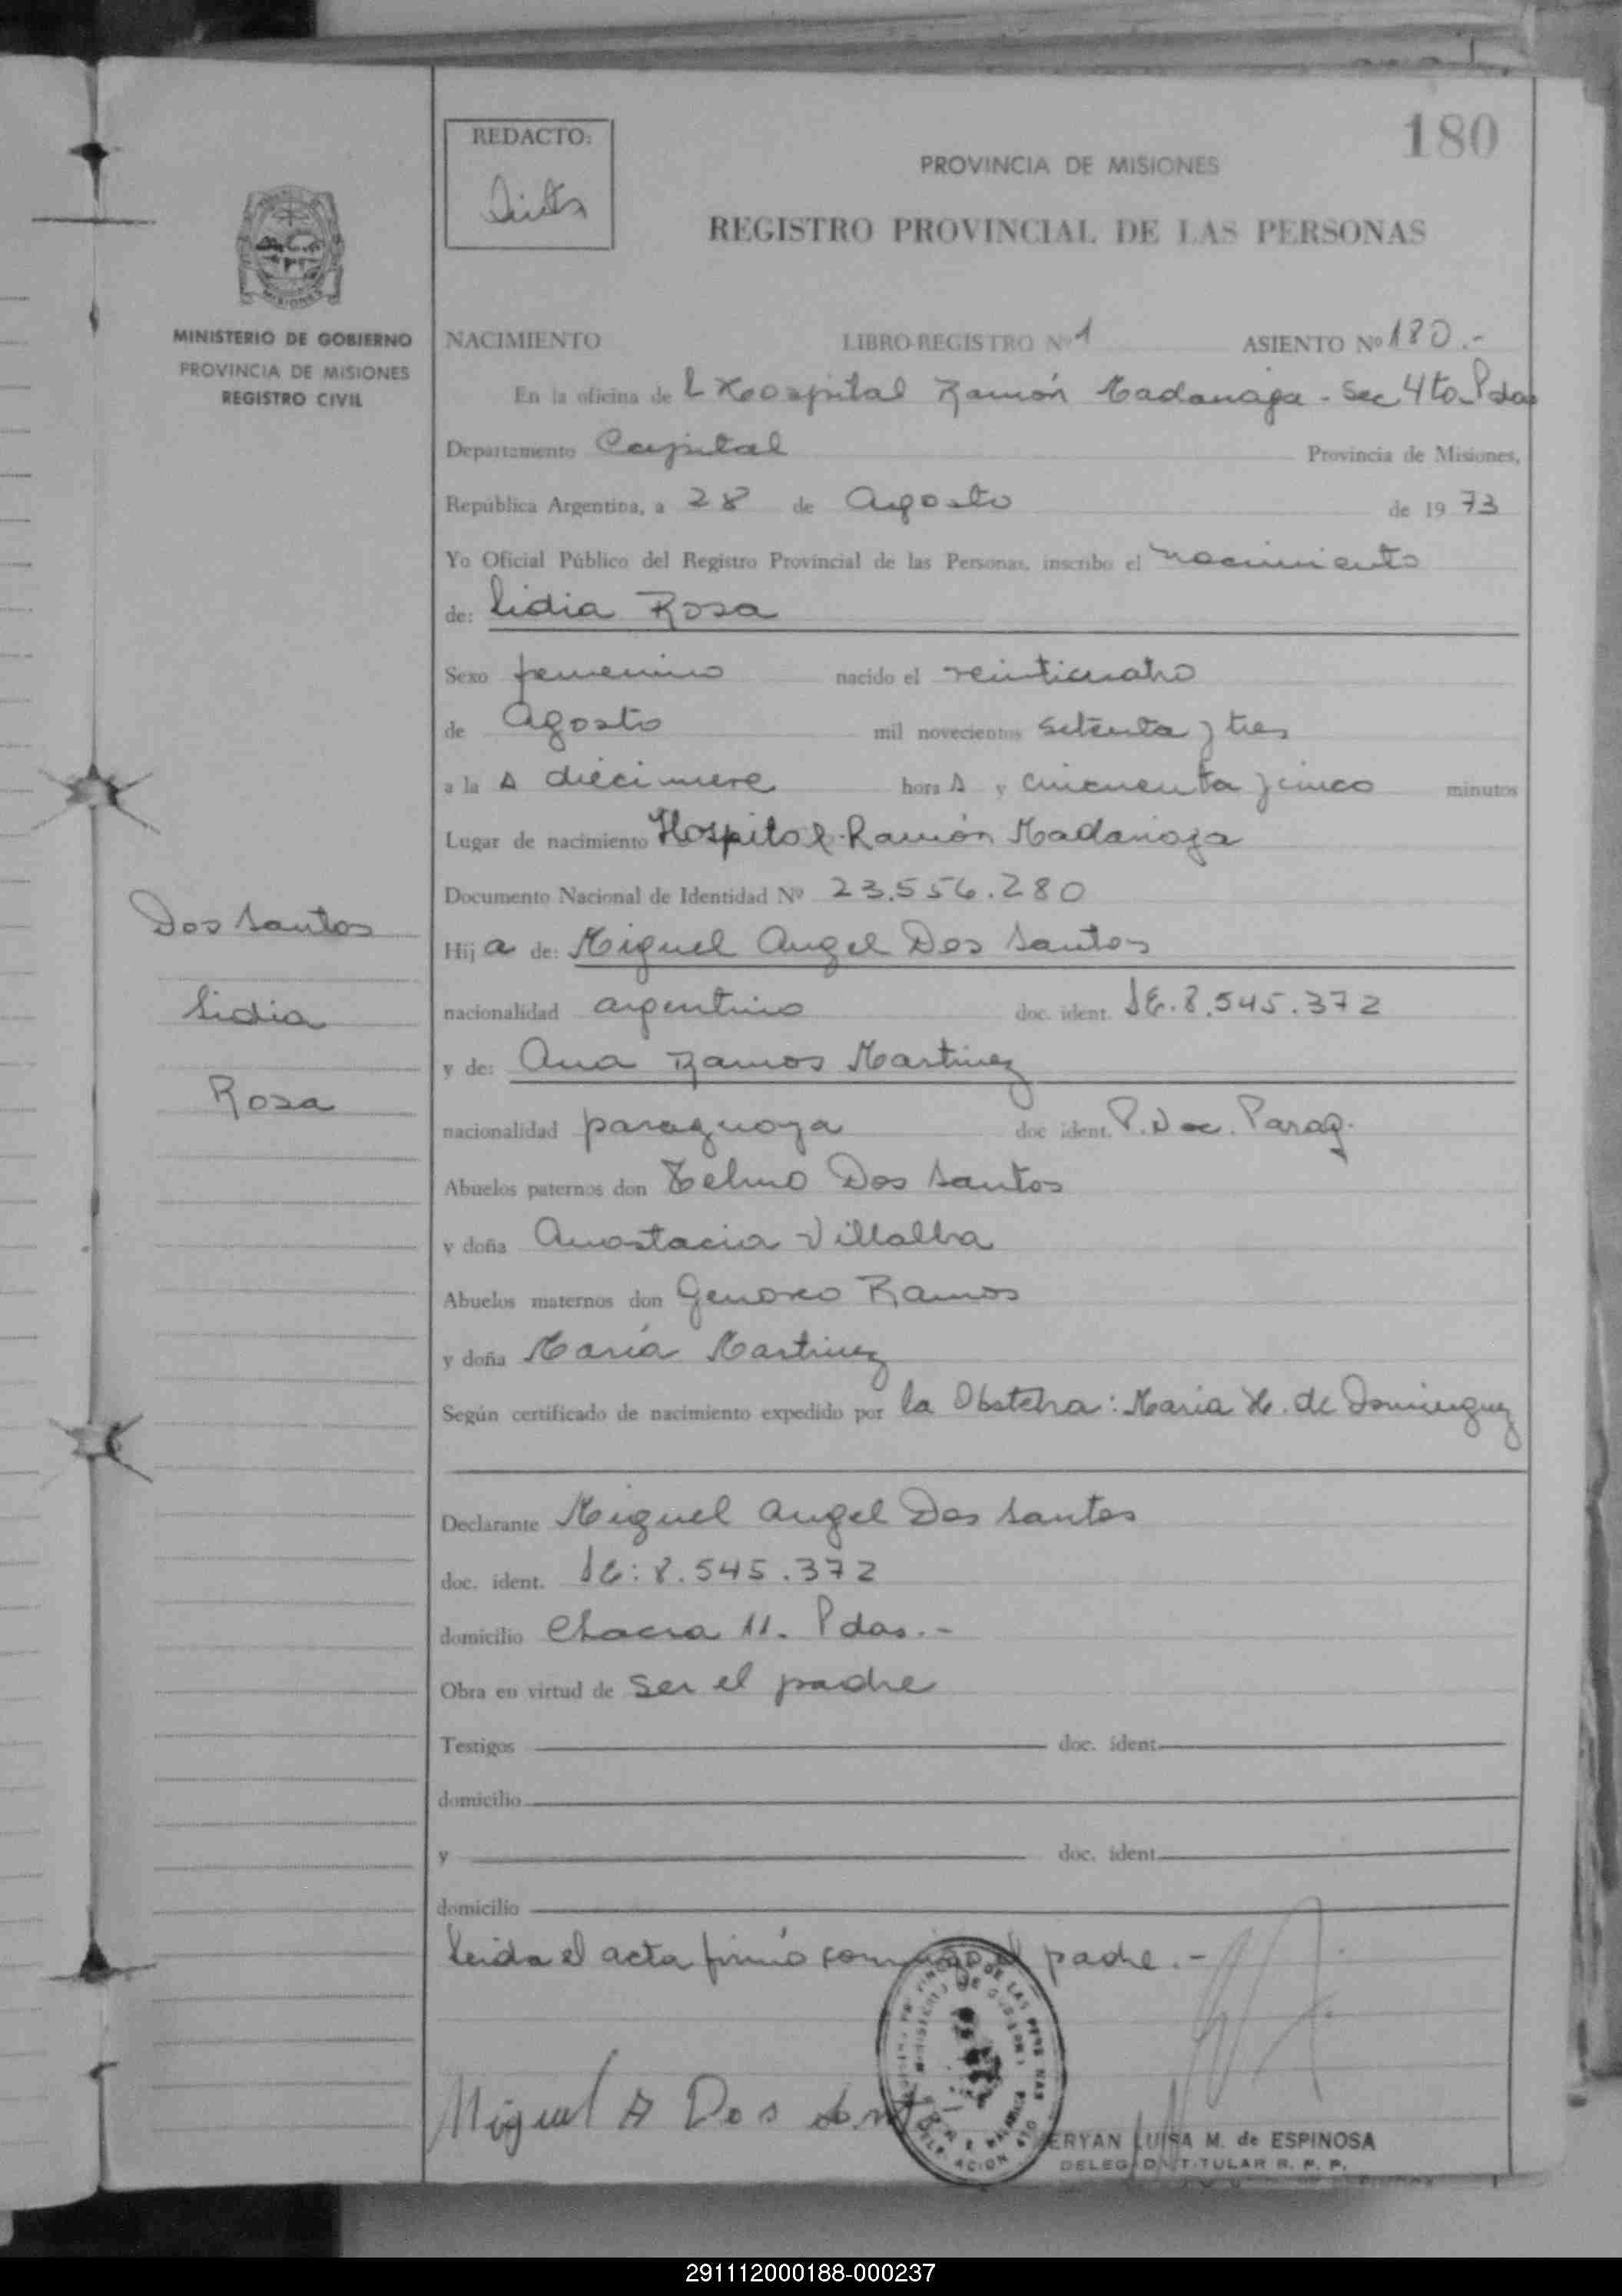 180
REDACTO:
PROVINCIA DE MISIONES
REGISTRO PROVINCIAL DE LAS PERSONAS
MISIONES
MINISTERIO DE GOBIERNO
PROVINCIA DE MISIONES
REGISTRO CIVIL
NACIMIENTO LIBRO-REGISTRO Nº 1 ASIENTO Nº 180.-
En la oficina de L Hospital Ramón Madariaga - Sec 4to. Pdas
Departamento Capital Provincia de Misiones,
República Argentina, a 28 de Agosto de 1973
Yo Oficial Público del Registro Provincial de las Personas, inscribo el nacimiento
de: Lidia Rosa
Sexo femenino nacido el veinticuatro
de Agosto mil novecientos setenta y tres
a la s diecinueve hora s y cincuenta y cinco minutos
Lugar de nacimiento Hospital Ramón Madariaga
Documento Nacional de Identidad Nº 23.556.280
Dos Santos
Lidia
Rosa
Hij a de: Miguel Angel Dos Santos
nacionalidad argentino doc. ident. LE. 8.545.372
y de: Ana Ramos Martinez
nacionalidad paraguaya doc ident. P. Doc. Parag.
Abuelos paternos don Telmo Dos Santos
y doña Anastacia Villalba
Abuelos maternos don Ramos
y doña María Martinez
Según certificado de nacimiento expedido por la Obstetra: Maria H. de Dominguez
Declarante Miguel Angel Dos Santos
doc. ident. LE: 8.545.372
domicilio Chacra 11. Pdas.-
Obra en virtud de ser el padre
Testigos doc. ident.
domicilio
y doc. ident.
domicilio
Leida el acta firmó conmigo el padre.-
Miguel A Dos Sant
ERYAN LUISA M. de ESPINOSA
DELEGADA TITULAR R. P. P.
291112000188-000237